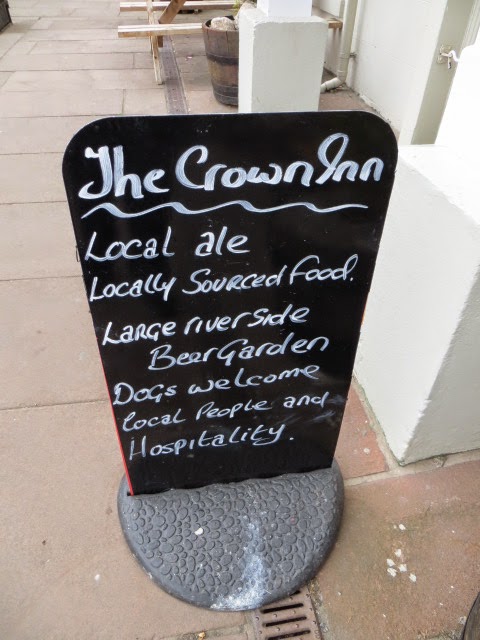 The Crown Inn
Local ale
Locally Sourced food.
Large riverside
Beer Garden
Dogs welcome
local People and
Hospitality.